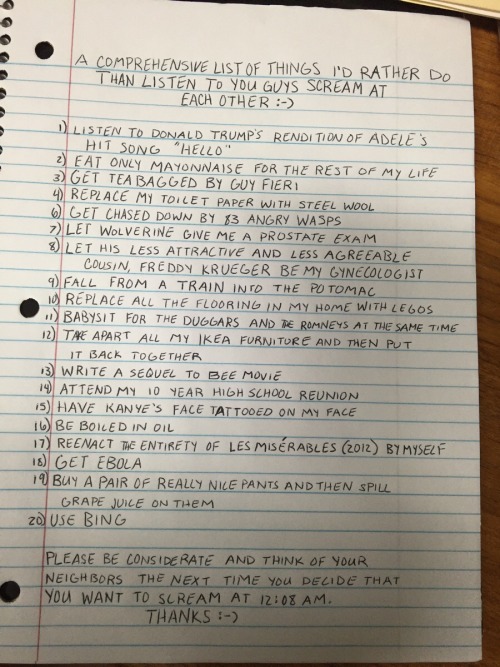 A COMPREHENSIVE LIST OF THINGS I'D RATHER DO
THAN LISTEN TO YOU GUYS SCREAM AT
EACH OTHER :-)
1) LISTEN TO DONALD TRUMP'S RENDITION OF ADELE'S
HIT SONG "HELLO"
2) EAT ONLY MAYONNAISE FOR THE REST OF MY LIFE
3) GET TEABAGGED BY GUY FIERI
4) REPLACE MY TOILET PAPER WITH STEEL WOOL
6) GET CHASED DOWN BY 83 ANGRY WASPS
7) LET WOLVERINE GIVE ME A PROSTATE EXAM
8) LET HIS LESS ATTRACTIVE AND LESS AGREEABLE
COUSIN, FREDDY KRUEGER BE MY GYNECOLOGIST
9) FALL FROM A TRAIN INTO THE POTOMAC
10) REPLACE ALL THE FLOORING IN MY HOME WITH LEGOS
11) BABYSIT FOR THE DUGGARS AND THE ROMNEYS AT THE SAME TIME
12) TAKE APART ALL MY IKEA FURNITURE AND THEN PUT
IT BACK TOGETHER
13) WRITE A SEQUEL TO BEE MOVIE
14) ATTEND MY 10 YEAR HIGH SCHOOL REUNION
15) HAVE KANYE'S FACE TATTOOED ON MY FACE
16) BE BOILED IN OIL
17) REENACT THE ENTIRETY OF LES MISÉRABLES (2012) BY MYSELF
18) GET EBOLA
19) BUY A PAIR OF REALLY NICE PANTS AND THEN SPILL
GRAPE JUICE ON THEM
20) USE BING
PLEASE BE CONSIDERATE AND THINK OF YOUR
NEIGHBORS THE NEXT TIME YOU DECIDE THAT
YOU WANT TO SCREAM AT 12:08 AM.
THANKS :-)